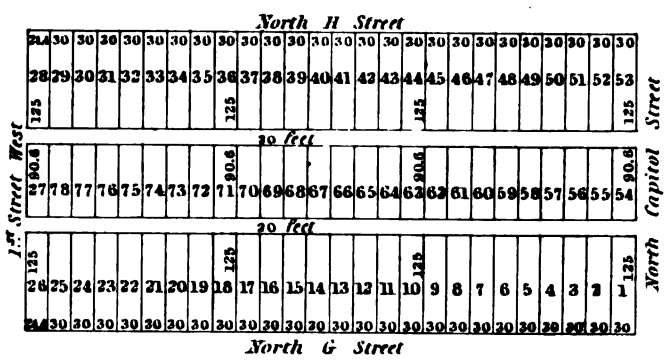 North H Street
24.4 30 30 30 30 30 30 30 30 30 30 30 30 30 30 30 30 30 30 30 30 30 30 30 30 30
28 29 30 31 32 33 34 35 36 37 38 39 40 41 42 43 44 45 46 47 48 49 50 51 52 53
125 125 125 125
20 feet
90.6 90.6 90.6 90.6
27 78 77 76 75 74 73 72 71 70 69 68 67 66 65 64 63 62 61 60 59 58 57 56 55 54
20 feet
125 125 125 125
26 25 24 23 22 21 20 19 18 17 16 15 14 13 12 11 10 9 8 7 6 5 4 3 2 1
24.4 30 30 30 30 30 30 30 30 30 30 30 30 30 30 30 30 30 30 30 30 30 30 30 30 30
North G Street
1st Street West
North Capitol Street